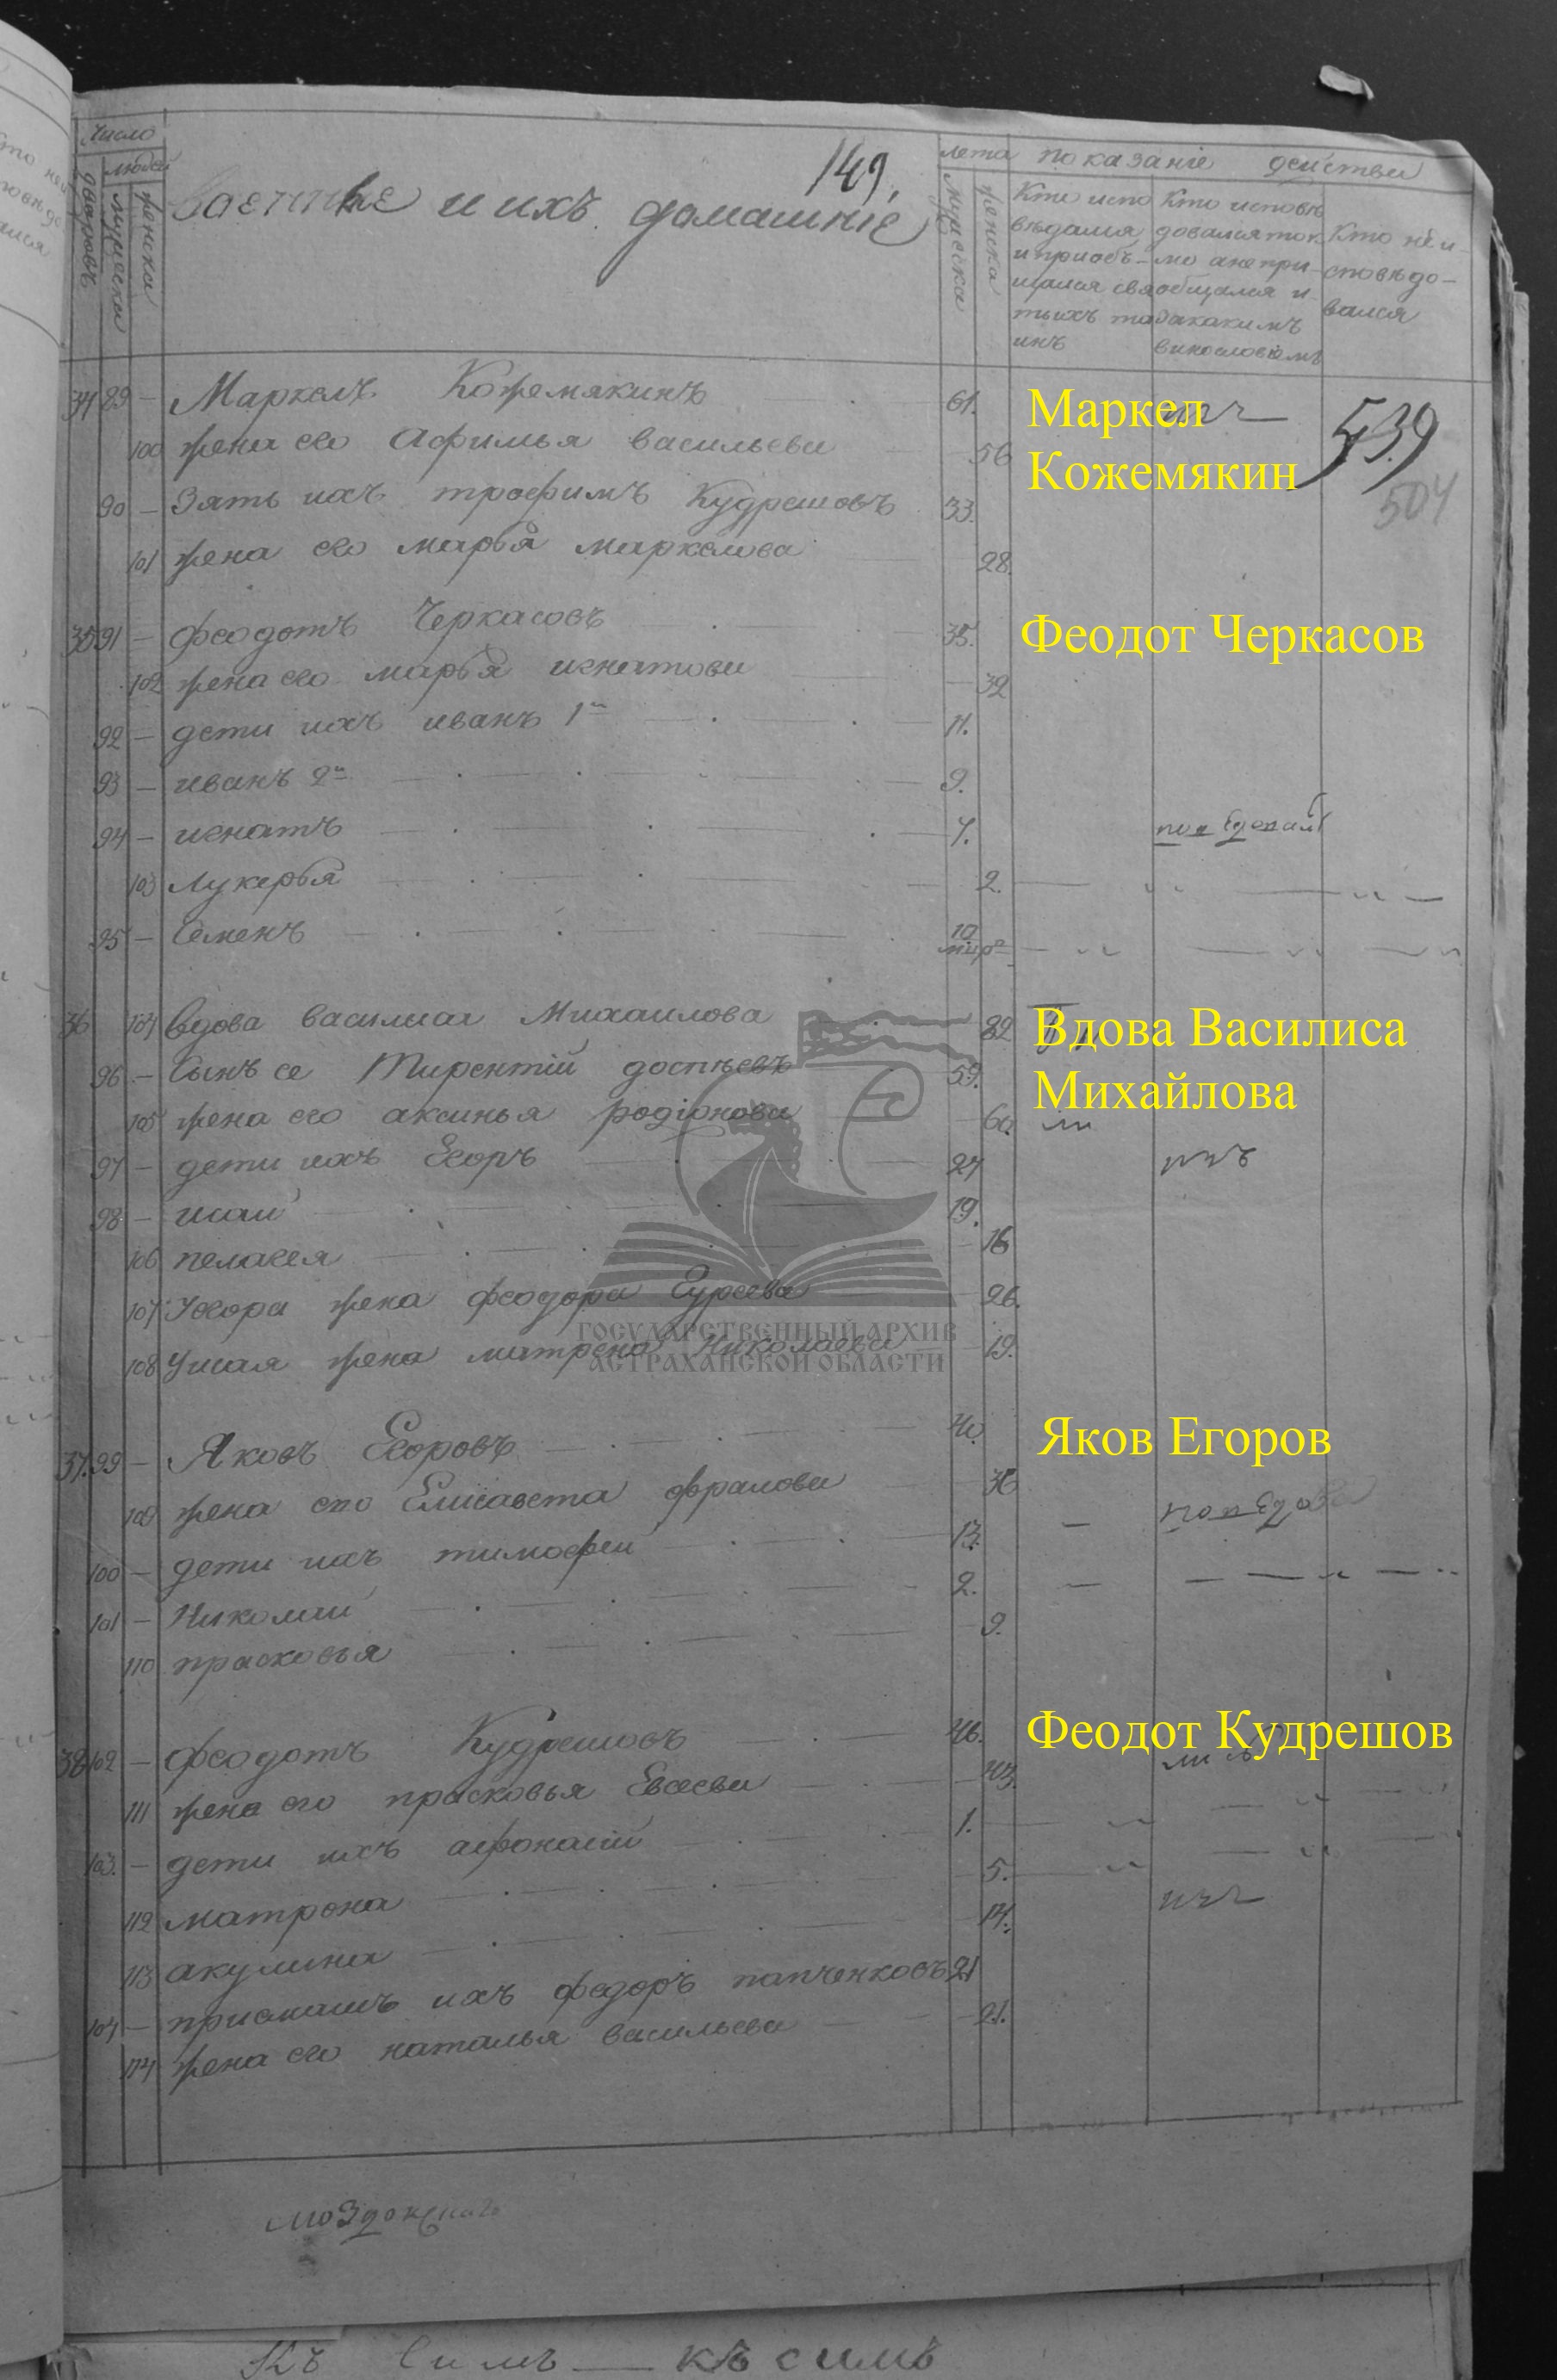 Число
людей
дворовъ
мужеска
женска
Военные и ихъ домашніе
149.
лета
мужеска
женска
показаніе действи
Кто испо
ведался
и приоб-
щался свя
тыхъ та
инъ
Кто испове
довался ток
мо а не при
общался и
закакимъ
винословіемъ
Кто не и-
споведо-
вался
34 89 – Маркелъ Кожемякинъ 61.
Маркел
Кожемякин
539
504
100 жена его Афимья васильева 56
90 – Зять ихъ трофимъ Кудрешовъ 33.
101 жена его марья маркелова 28.
35 91 – феодотъ Черкасовъ 35.
Феодот Черкасов
102 жена его марья игнатова 32
92 – дети ихъ иванъ 1й 11.
93 – иванъ 2й 9.
94 – игнатъ 7.
103 лукерья 2.
95 – Семенъ 10
36 104 вдова василиса Михаилова 82
Вдова Василиса
Михайлова
96 – Сынъ ее Тирентій доспеевъ 59.
105 жена его аксинья родіонова 60.
97 – дети ихъ Егоръ 27
98 – исаи 19.
106 пелагея 16
107 Уегора жена феодора Гурьева 26.
108 Уисая жена матрена николаева 19.
ГОСУДАРСТВЕННЫЙ АРХИВ
АСТРАХАНСКОЙ ОБЛАСТИ
37. 99 – Яковъ Егоровъ 40.
Яков Егоров
109 жена его Елисавета фралова 36
100 – дети ихъ тимофеи 13.
101 – Николаи 2.
110 прасковья 9.
38 102 – феодотъ Кудрешовъ 46.
Феодот Кудрешов
111 жена его прасковья Евсеева 43.
103. – дети ихъ афонасій 1.
112 матрона 5.
113 акулина 14.
104 – приемышъ ихъ федоръ папченковъ 21
114 жена его наталья васильева 21.
къ симъ